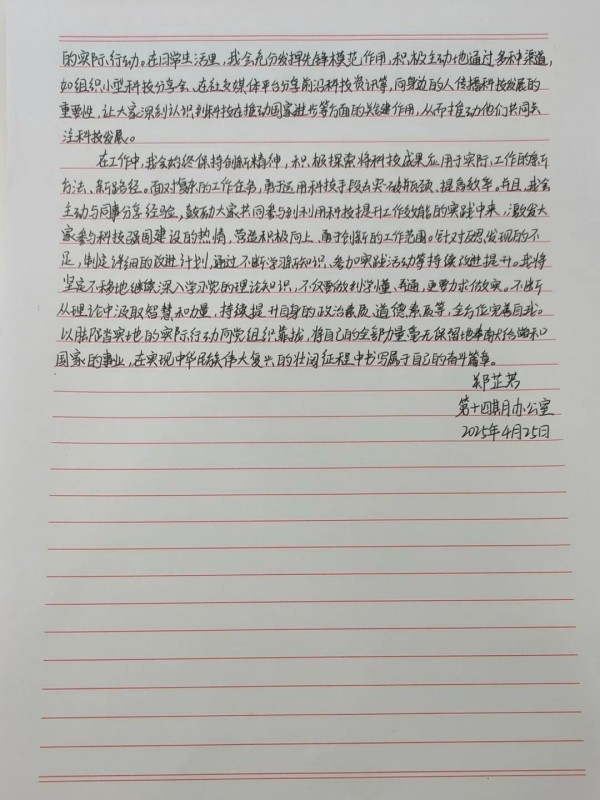 的实际行动。在日常生活里，我会充分发挥先锋模范作用，积极主动地通过多种渠道，
如组织小型科技分享会、在社交媒体平台分享前沿科技资讯等，向身边的人传播科技发展的
重要性，让大家深刻认识到科技在推动国家进步等方面的关键作用，从而推动他们共同关
注科技发展。
在工作中，我会始终保持创新精神，积极探索将科技成果应用于实际工作的新
方法、新路径。面对复杂的工作任务，勇于运用科技手段去突破瓶颈、提高效率。并且，我会
主动与同事分享经验，鼓励大家共同参与到利用科技提升工作效能的实践中来，激发大
家参与科技强国建设的热情，营造积极向上、勇于创新的工作范围。针对发现的不
足，制定详细的改进计划，通过不断学习新知识、参加实践活动等持续改进提升。我将
坚定不移地继续深入学习党的理论知识，不仅要做到学懂、弄通，更要力求做实。不断
从理论中汲取智慧和力量，持续提升自身的政治素质、道德素质等，全方位完善自我。
以脚踏实地的实际行动向党组织靠拢，将自己的全部力量毫无保留地奉献给党和
国家的事业，在实现中华民族伟大复兴的壮阔征程中书写属于自己的奋斗篇章。
郑芷若
第十四期月办公室
2025年4月25日